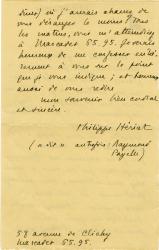 dines) où j'aurais chance de
vous déranger le moins? Tous
les matins, on m'atteindra
à Marcadet 55.95. Je serais
heureux de me
rement à vous sur le point
que je vous indique; et heureux
aussi de vous redire
mon souvenir bien cordial
et sincère.
Philippe Hériat
("à dit" autrefois: Raymond
Payelle)
58 avenue de Clichy
Marcadet 55.95.